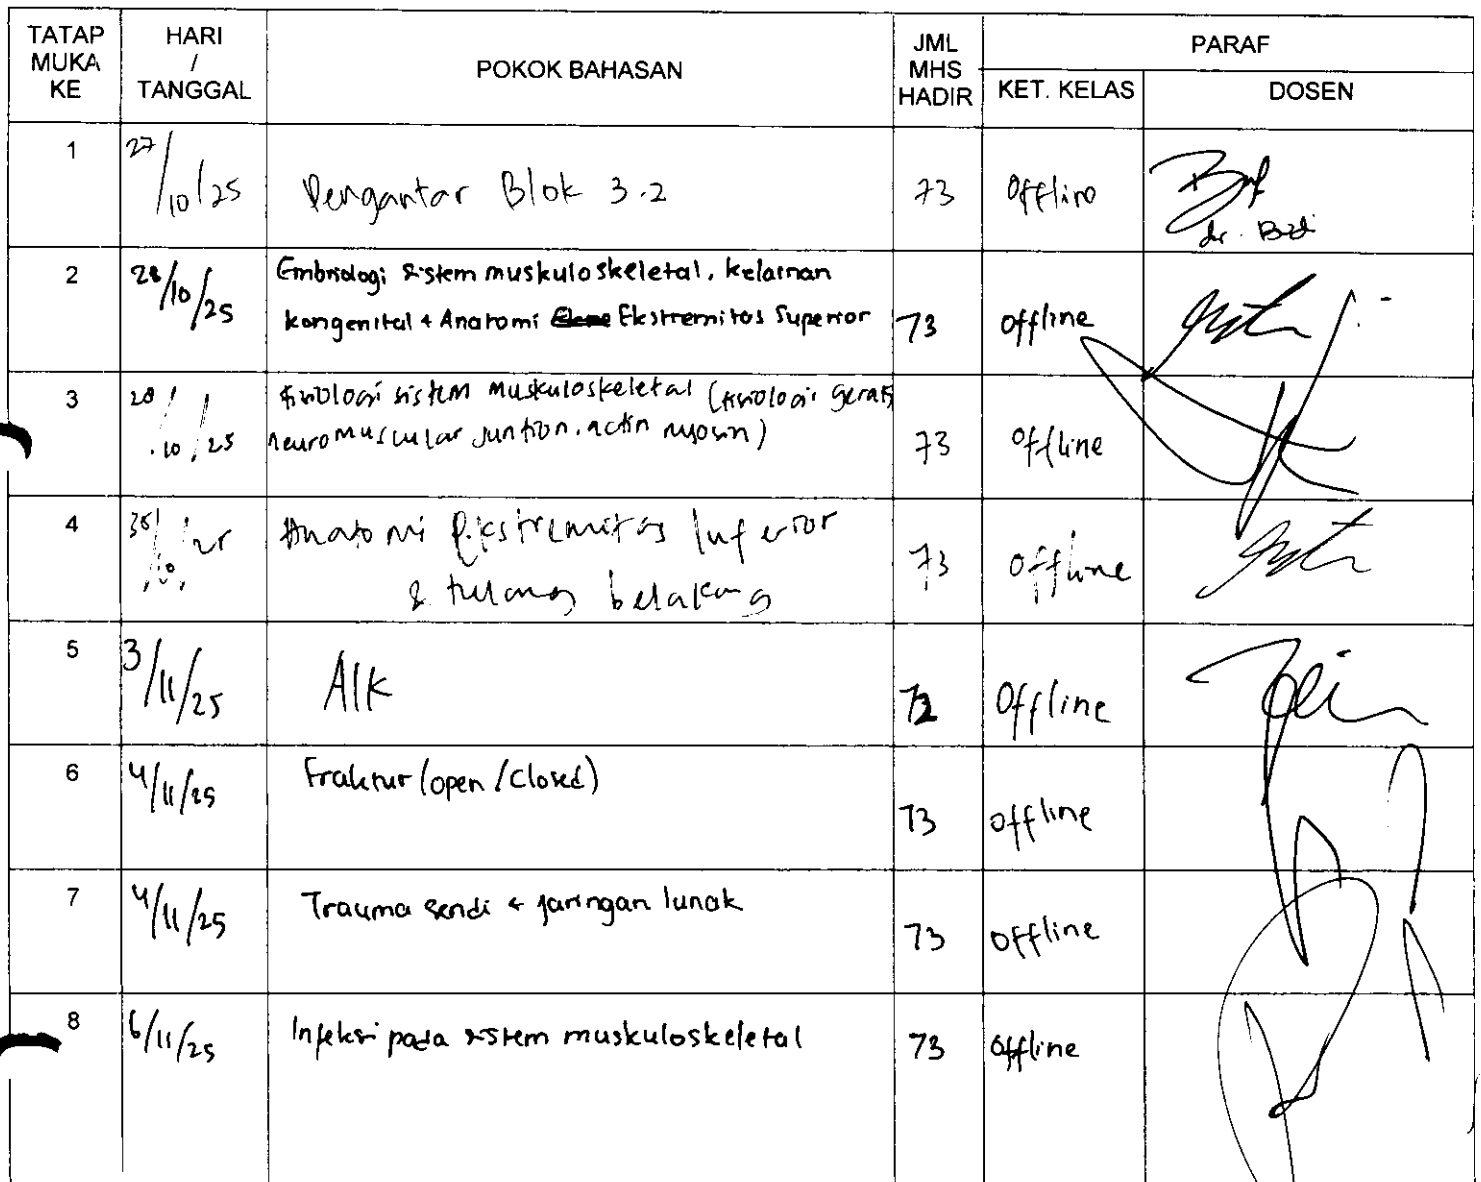 TATAP MUKA KE | HARI / TANGGAL | POKOK BAHASAN | JML MHS HADIR | PARAF
KET. KELAS | DOSEN
1 | 27/10/25 | Pengantar Blok 3.2 | 73 | Offline | dr. Budi
2 | 28/10/25 | Embriologi sistem muskuloskeletal, kelainan
kongenital + Anatomi Ekstremitas Superior | 73 | Offline
3 | 28/10/25 | Fisiologi sistem muskuloskeletal (fisiologi gerak,
neuromuscular juntion, actin myosin) | 73 | Offline
4 | /10/25 | Anatomi Ekstremitas Inferior
& tulang belakang | 73 | Offline
5 | 3/11/25 | AIK | 72 | Offline
6 | 4/11/25 | Fraktur (open / Closed) | 73 | Offline
7 | 4/11/25 | Trauma sendi & jaringan lunak | 73 | Offline
8 | 6/11/25 | Infeksi pada sistem muskuloskeletal | 73 | Offline